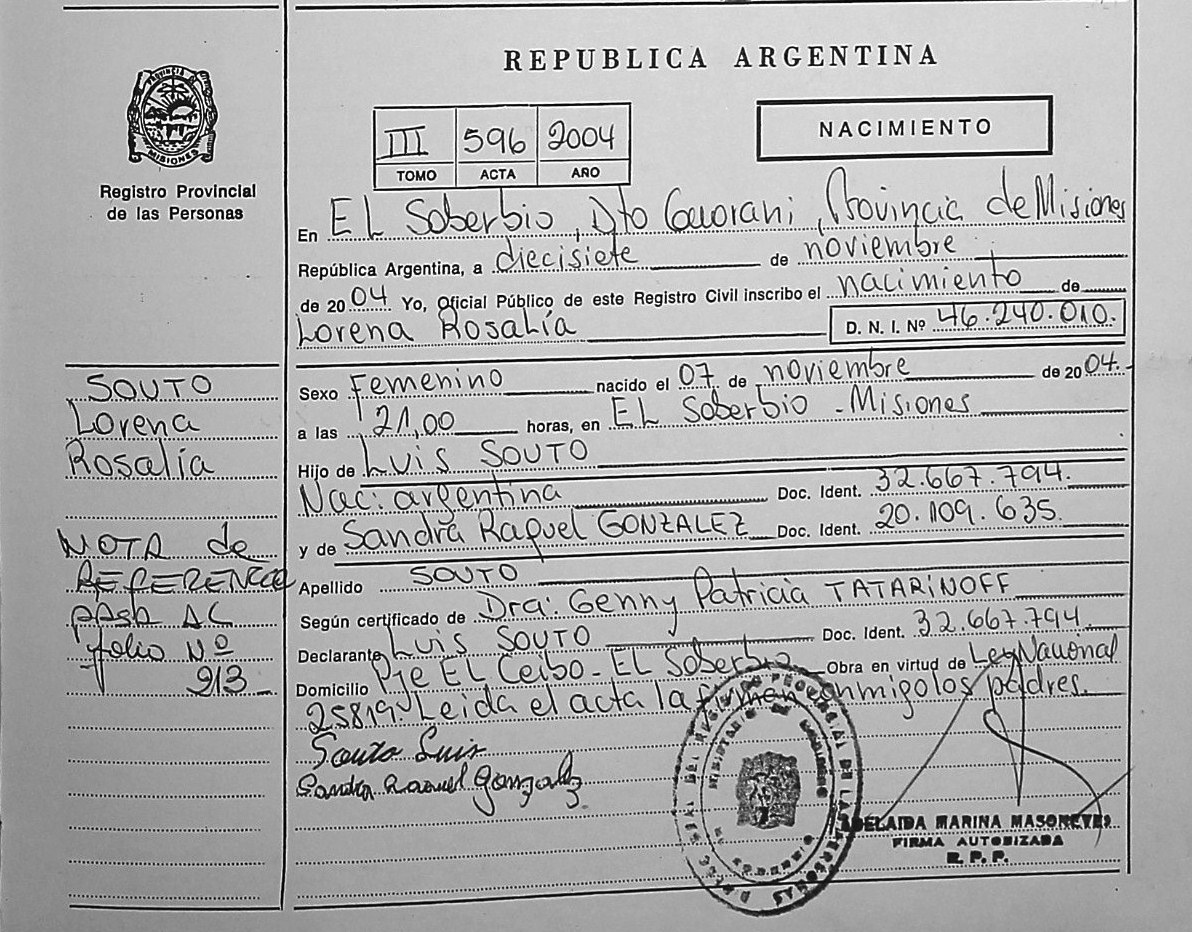 REPUBLICA ARGENTINA
PROVINCIA DE MISIONES
Registro Provincial
de las Personas
III 596 2004
TOMO ACTA AÑO
NACIMIENTO
En EL Soberbio, Dto Guarani, Provincia de Misiones
República Argentina, a diecisiete de noviembre
de 2004 Yo, Oficial Público de este Registro Civil inscribo el nacimiento de
Lorena Rosalía D. N. I. Nº 46.240.010.
SOUTO
Lorena
Rosalía
Sexo Femenino nacido el 07 de noviembre de 2004.
a las 21,00 horas, en EL Soberbio - Misiones
Hijo de Luis SOUTO
Nac: argentina Doc. Ident. 32.667.794.
y de Sandra Raquel GONZALEZ Doc. Ident. 20.109.635.
Apellido SOUTO
Según certificado de Dra: Genny Patricia TATARINOFF
Declarante Luis SOUTO Doc. Ident. 32.667.794
Domicilio Pje EL Ceibo - EL Soberbio Obra en virtud de Ley Nacional
25819. Leida el acta la firman conmigo los padres.
NOTA de
REFERENCIA
pasa AL
folio Nº
913
Souto Luis
Sandra Raquel Gonzalez
ADELAIDA MARINA MASONEYES
FIRMA AUTORIZADA
R. P. P.